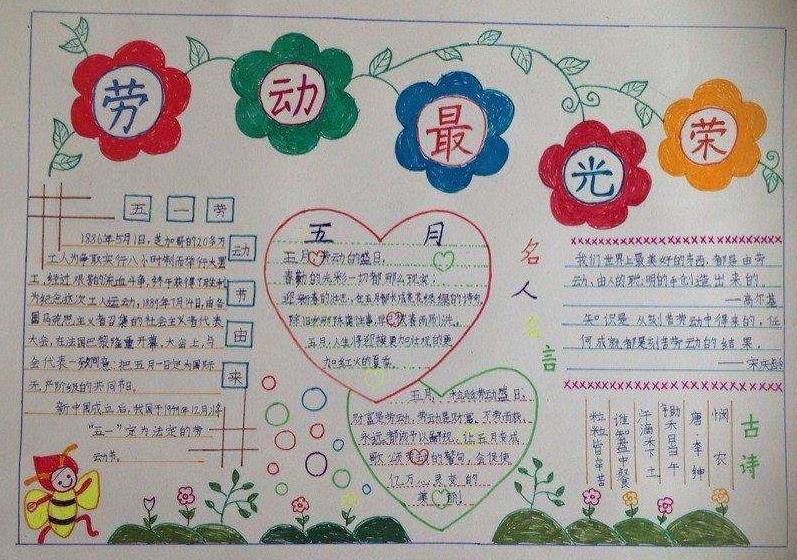 劳动最光荣
五一劳动节由来
1886年5月1日,芝加哥的20多万
工人为争取实行八小时制而举行大罢
工,经过艰苦的流血斗争,终于获得了胜利
为纪念这次工人运动,1889年7月14日,由各
国马克思主义者召集的社会主义者代表
大会,在法国巴黎隆重开幕,大会上,与
会代表一致同意:把五月一日定为国际
无产阶级的共同节日。
新中国成立后,我国于1949年12月将
"五一"定为法定的劳
动节。
五月
五月 劳动的盛日,
春勤的光彩一切都那么现实,
五月,人生得迎接更加壮观的更
加红火的直奔。
五月,
财富是劳动,劳动是财富,不劳而获,
永远都 让五月变成
歌颂 的警句,会促使
亿万心灵变的
美丽
名人名言
我们世界上最美好的东西,都是由劳
动、由人的聪明的手创造出来的。
——高尔基
知识是从刻苦劳动中得来的,任
何成就都是刻苦劳动的结果。
——宋庆龄
古诗
悯农
唐·李绅
锄禾日当午
汗滴禾下土
谁知盘中餐
粒粒皆辛苦